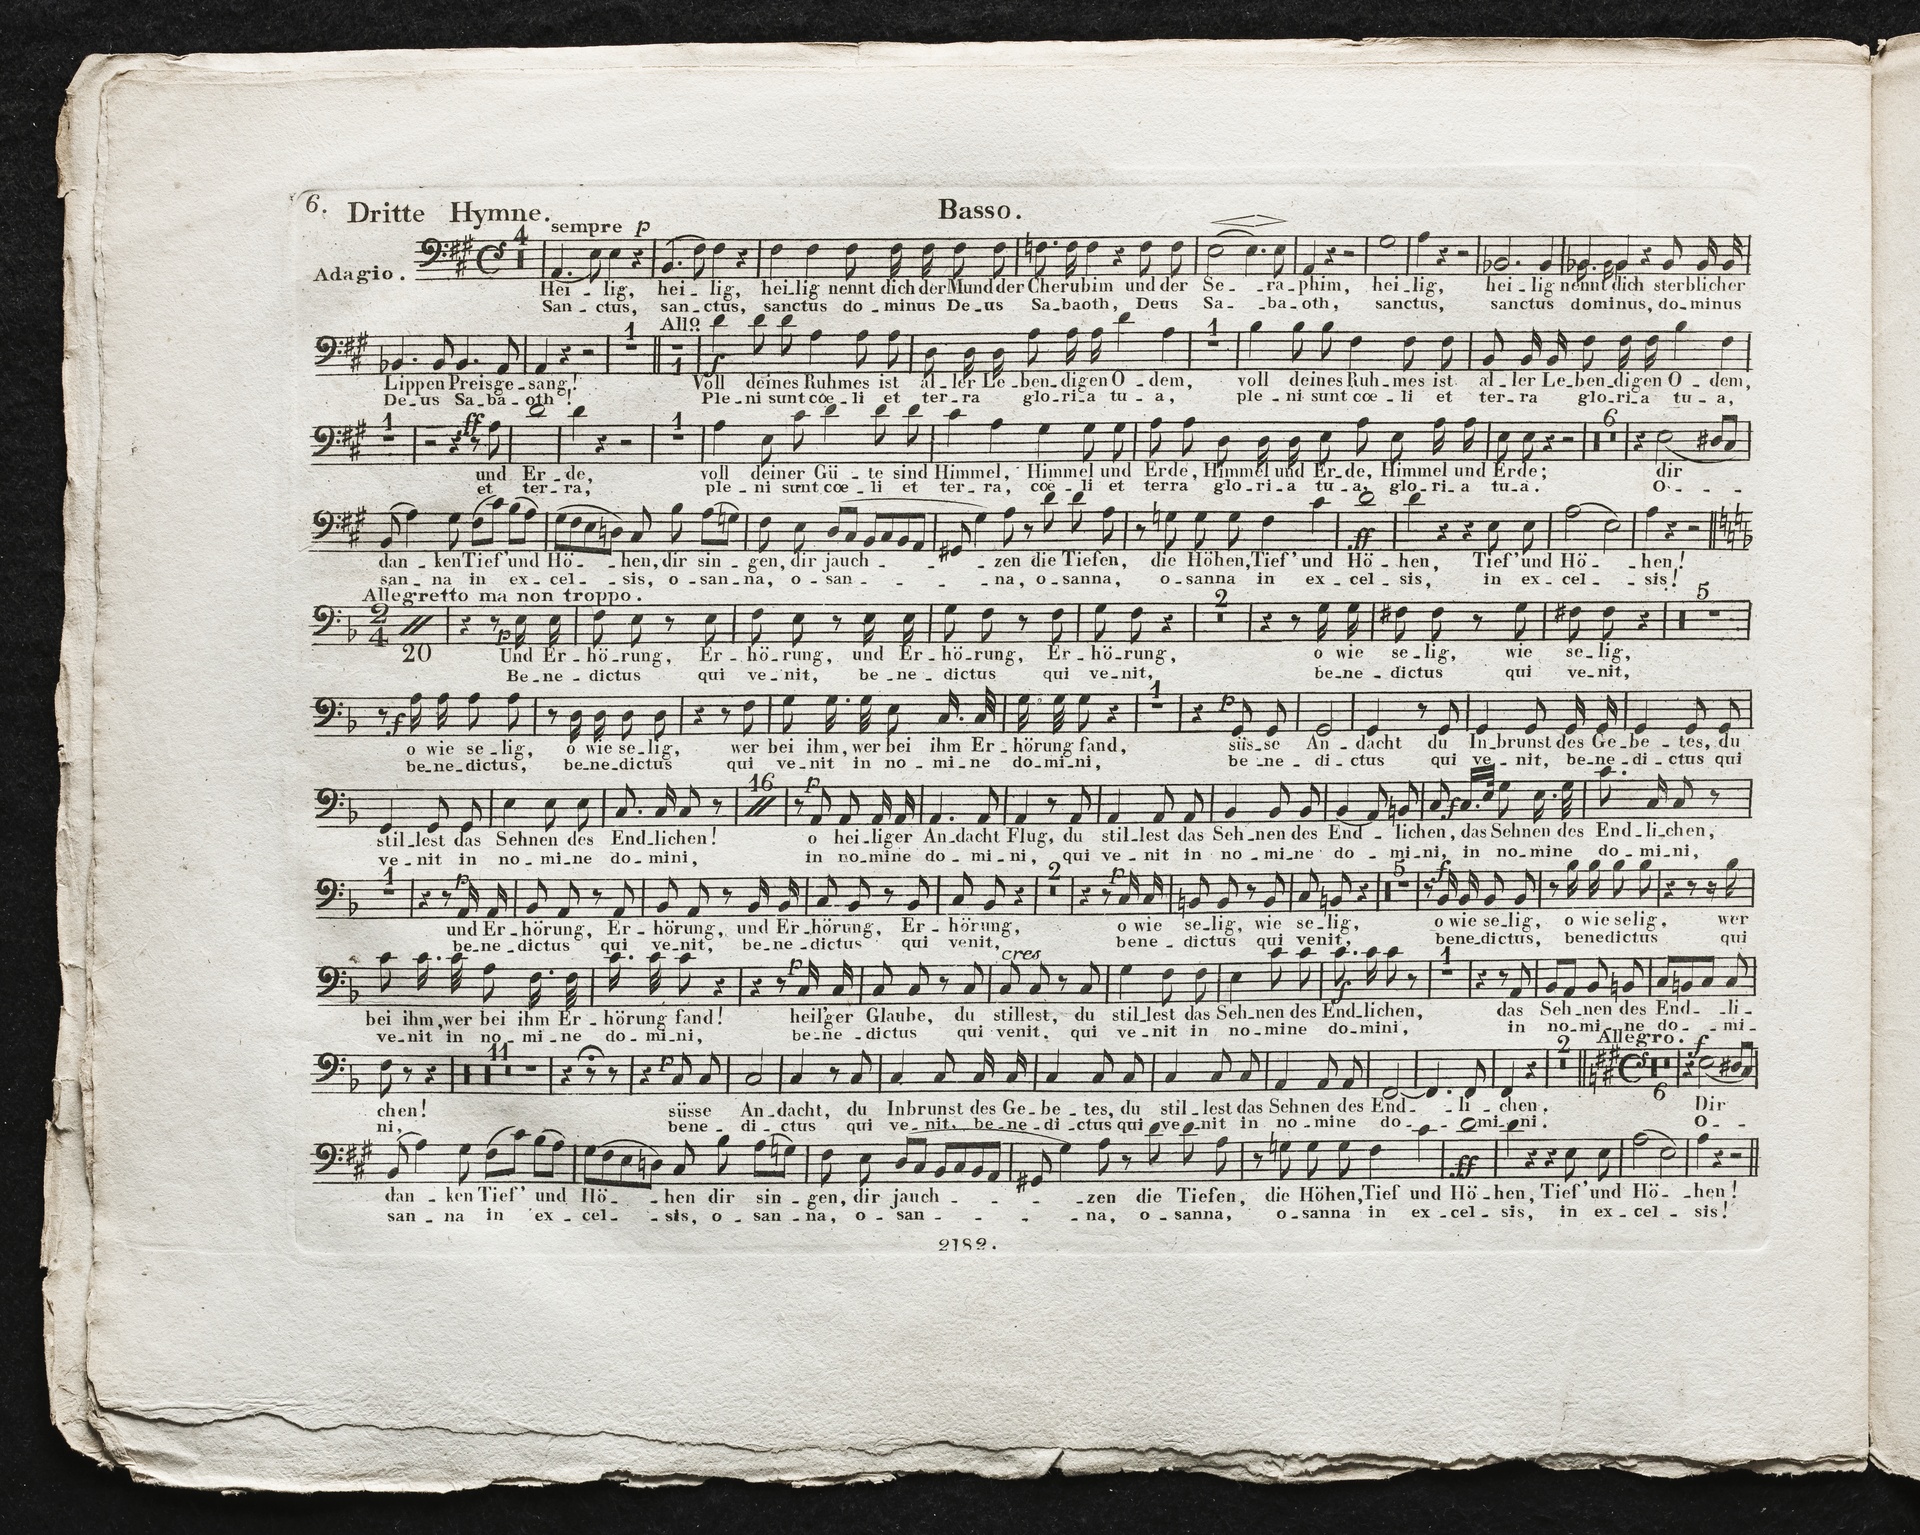 6. Dritte Hymne. Basso.
sempre p
4
Adagio.
Hei - lig, hei - lig, hei - lig nennt dich der Mund der Cherubim und der Se - ra - phim, hei - lig, hei - lig nennt dich sterblicher
San - ctus, san - ctus, sanctus do - minus De - us Sa - baoth, Deus Sa - ba - oth, sanctus, sanctus dominus, do - minus
1 Allo. 1 f 1
Lippen Preisge - sang! Voll deines Ruhmes ist al - ler Le - ben - digen O - dem, voll deines Ruh - mes ist al - ler Le - ben - digen O - dem,
De - us Sa - ba - oth! Ple - ni sunt cœ - li et ter - ra glo - ri - a tu - a, ple - ni sunt cœ - li et ter - ra glo - ri - a tu - a,
1 ff 1 6
und Er - de, voll deiner Gü - te sind Himmel, Himmel und Erde, Himmel und Er - de, Himmel und Erde; dir
et ter - ra, ple - ni sunt cœ - li et ter - ra, cœ - li et terra glo - ri - a tu - a, glo - ri - a tu - a. O - - -
ff
dan - ken Tief' und Hö - hen, dir sin - gen, dir jauch - - zen die Tiefen, die Höhen, Tief' und Hö - hen, Tief' und Hö - hen!
san - na in ex - cel - sis, o - san - na, o - san - - - na, o - sanna, o - sanna in ex - cel - sis, in ex - cel - sis!
Allegretto ma non troppo.
2 4 20 p 2 5
Und Er - hö - rung, Er - hö - rung, und Er - hö - rung, Er - hö - rung, o wie se - lig, wie se - lig,
Be - ne - dictus qui ve - nit, be - ne - dictus qui ve - nit, be - ne - dictus qui ve - nit,
f 1 p
o wie se - lig, o wie se - lig, wer bei ihm, wer bei ihm Er - hörung fand, süs - se An - dacht du In - brunst des Ge - be - tes, du
be - ne - dictus, be - ne - dictus qui ve - nit in no - mi - ne do - mi - ni, be - ne - di - ctus qui ve - nit, be - ne - di - ctus qui
16 p f
stil - lest das Sehnen des End - lichen! o hei - liger An - dacht Flug, du stil - lest das Seh - nen des End - lichen, das Sehnen des End - li - chen,
ve - nit in no - mi - ne do - mini, in no - mine do - mi - ni, qui ve - nit in no - mi - ne do - mi - ni, in no - mine do - mi - ni,
1 p 2 p 5 f
und Er - hörung, Er - hörung, und Er - hörung, Er - hörung, o wie se - lig, wie se - lig, o wie se - lig, o wie selig, wer
be - ne - dictus qui ve - nit, be - ne - dictus qui venit, bene - dictus qui venit, bene - dictus, benedictus qui
p cres f 1
bei ihm, wer bei ihm Er - hörung fand! heil'ger Glaube, du stillest, du stil - lest das Seh - nen des End - lichen, das Seh - nen des End - li -
ve - nit in no - mi - ne do - mi - ni, be - ne - dictus qui venit, qui ve - nit in no - mine do - mini, in no - mi - ne do - mi -
11 p 2 Allegro. 6 f
chen! süsse An - dacht, du Inbrunst des Ge - be - tes, du stil - lest das Sehnen des End - li - chen. Dir
ni, bene - di - ctus qui ve - nit, be - ne - di - ctus qui ve - nit in no - mine do - mi - ni. O - -
ff
dan - ken Tief' und Hö - hen dir sin - gen, dir jauch - - - zen die Tiefen, die Höhen, Tief und Hö - hen, Tief' und Hö - hen!
san - na in ex - cel - sis, o - san - na, o - san - - - na, o - sanna, o - sanna in ex - cel - sis, in ex - cel - sis!
2182.